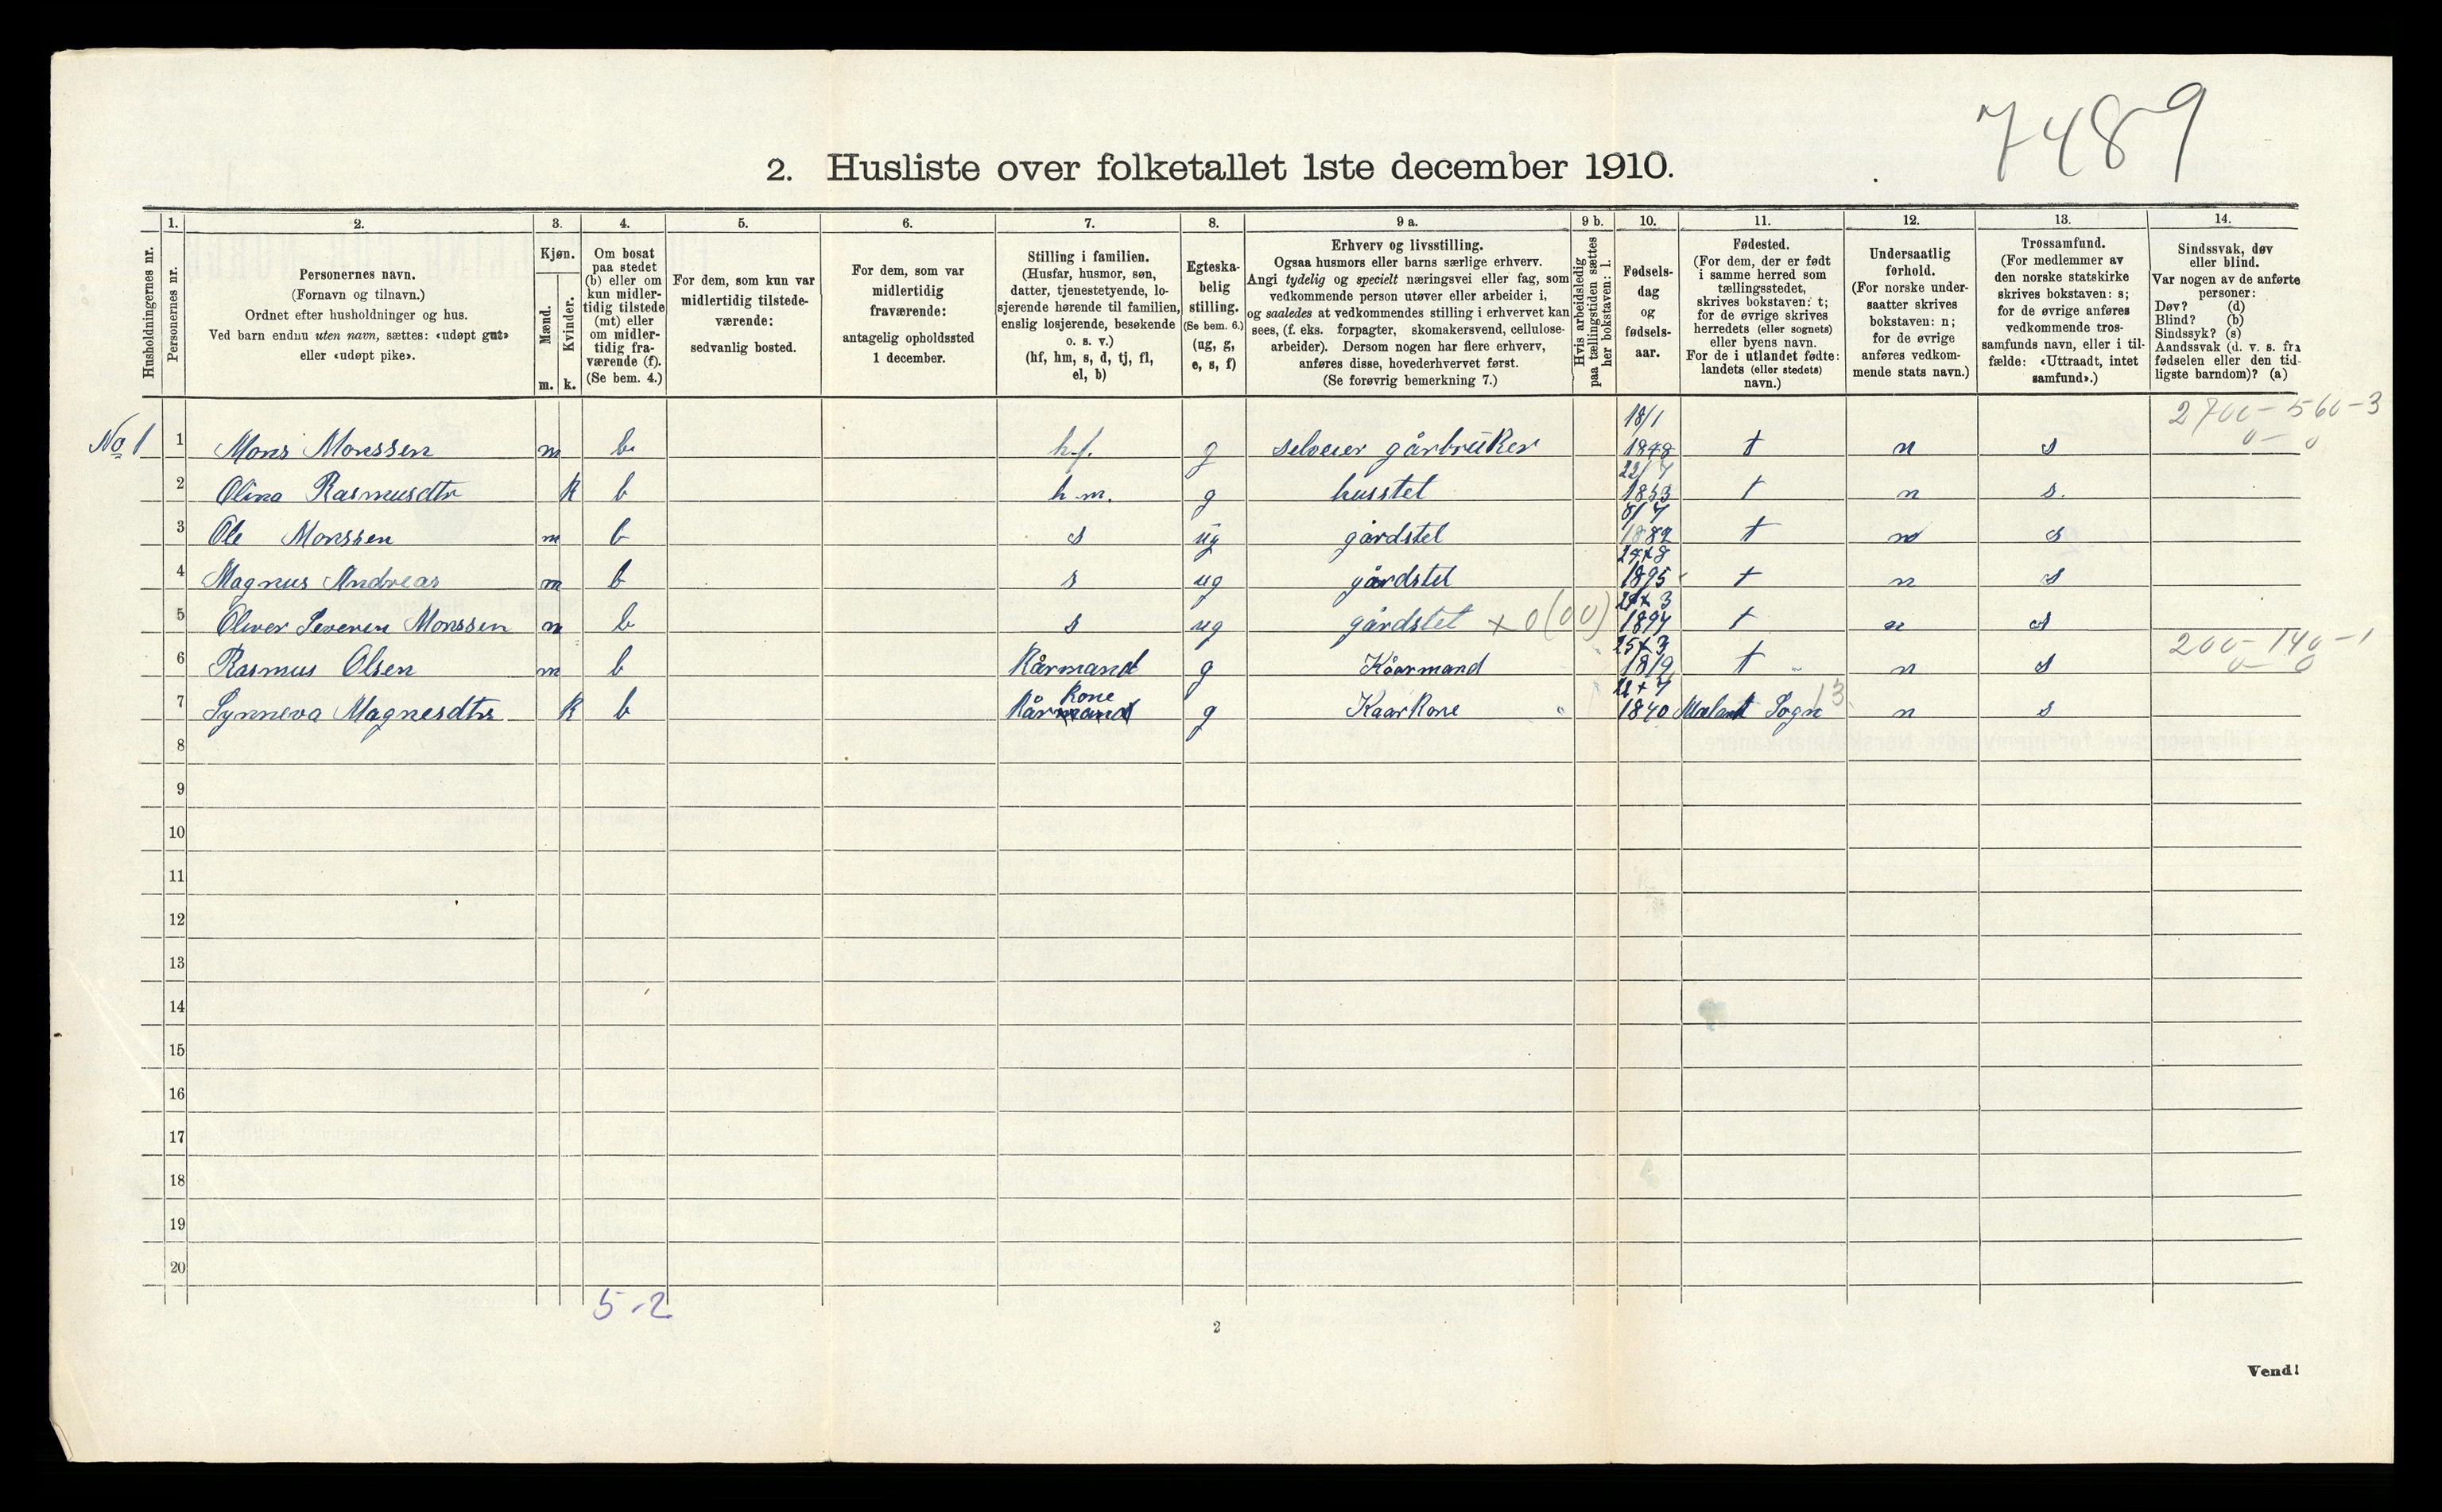 7489
2. Husliste over folketallet 1ste december 1910.
Husholdningernes nr.
1. Personernes nr.
2. Personernes navn. (Fornavn og tilnavn.) Ordnet efter husholdninger og hus. Ved barn endnu uten navn, sættes: «udøpt gut» eller «udøpt pike».
3. Kjøn. Mænd. m. Kvinder. k.
4. Om bosat paa stedet (b) eller om kun midlertidig tilstede (mt) eller om midlertidig fraværende (f). (Se bem. 4.)
5. For dem, som kun var midlertidig tilstedeværende: sedvanlig bosted.
6. For dem, som var midlertidig fraværende: antagelig opholdssted 1 december.
7. Stilling i familien. (Husfar, husmor, søn, datter, tjenestetyende, losjerende hørende til familien, enslig losjerende, besøkende o. s. v.) (hf, hm, s, d, tj, fl, el, b)
8. Egteskabelig stilling. (Se bem. 6.) (ug, g, e, s, f)
9 a. Erhverv og livsstilling. Ogsaa husmors eller barns særlige erhverv. Angi tydelig og specielt næringsvei eller fag, som vedkommende person utøver eller arbeider i, og saaledes at vedkommendes stilling i erhvervet kan sees, (f. eks. forpagter, skomakersvend, cellulosearbeider). Dersom nogen har flere erhverv, anføres disse, hovederhvervet først. (Se forøvrig bemerkning 7.)
9 b. Hvis arbeidsledig paa tællingstiden sættes her bokstaven: l.
10. Fødselsdag og fødselsaar.
11. Fødested. (For dem, der er født i samme herred som tællingsstedet, skrives bokstaven: t; for de øvrige skrives herredets (eller sognets) eller byens navn. For de i utlandet fødte: landets (eller stedets) navn.)
12. Undersaatlig forhold. (For norske undersaatter skrives bokstaven: n; for de øvrige anføres vedkommende stats navn.)
13. Trossamfund. (For medlemmer av den norske statskirke skrives bokstaven: s; for de øvrige anføres vedkommende trossamfunds navn, eller i tilfælde: «Uttraadt, intet samfund».)
14. Sindssvak, døv eller blind. Var nogen av de anførte personer: Døv? (d) Blind? (b) Sindssyk? (s) Aandssvak (d. v. s. fra fødselen eller den tidligste barndom)? (a)
2700-560-3
0-0
No 1 1 Mons Monssen m b. h.f. g selveier gårbrüker 18/1 1848 t n s
2 Olina Rasmusdtr k b h.m. g husstel 22/7 1853 t n s.
3 Ole Monssen m b s üg gårdstel 8/7 1882 t n s
4 Magnus Andreas m b s ug gårdstel 1895 t n s
5 Oliver Severin Monssen m b s ug gårdstel x 0(00) 1894 t n s
200-140-1
0-0
6 Rasmus Olsen m b Kårmand g Kåarmand 25/3 1819 t n s
7 Synneva Magnesdtr k b Kårmand Kone g Kaarkone " 1840 Sogn 13 n s
8
9
10
11
12
13
14
15
16
17
18
19
20
5-2
2
Vend!